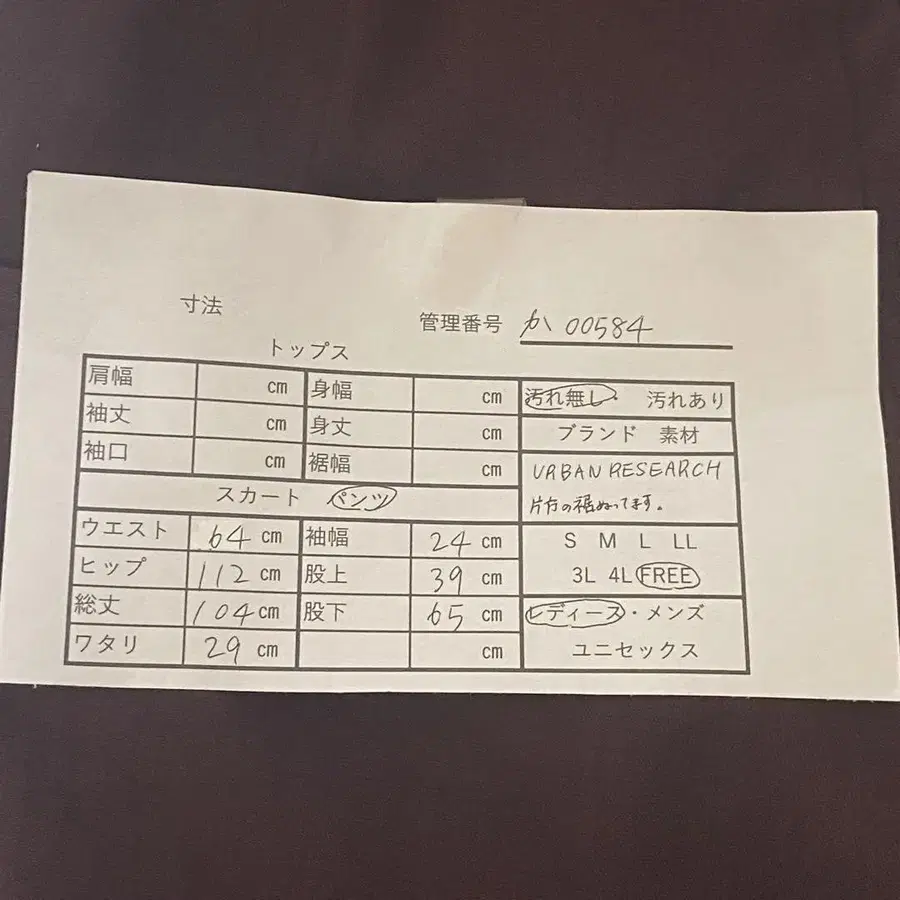 寸法
管理番号 か 00584
トップス
肩幅 cm 身幅 cm 汚れ無し・ 汚れあり
袖丈 cm 身丈 cm ブランド 素材
袖口 cm 裾幅 cm URBAN RESEARCH
スカート パンツ 片方の裾ぬってます。
ウエスト 64 cm 袖幅 24 cm S M L LL
ヒップ 112 cm 股上 39 cm 3L 4L FREE
総丈 104 cm 股下 65 cm レディース・メンズ
ワタリ 29 cm cm ユニセックス